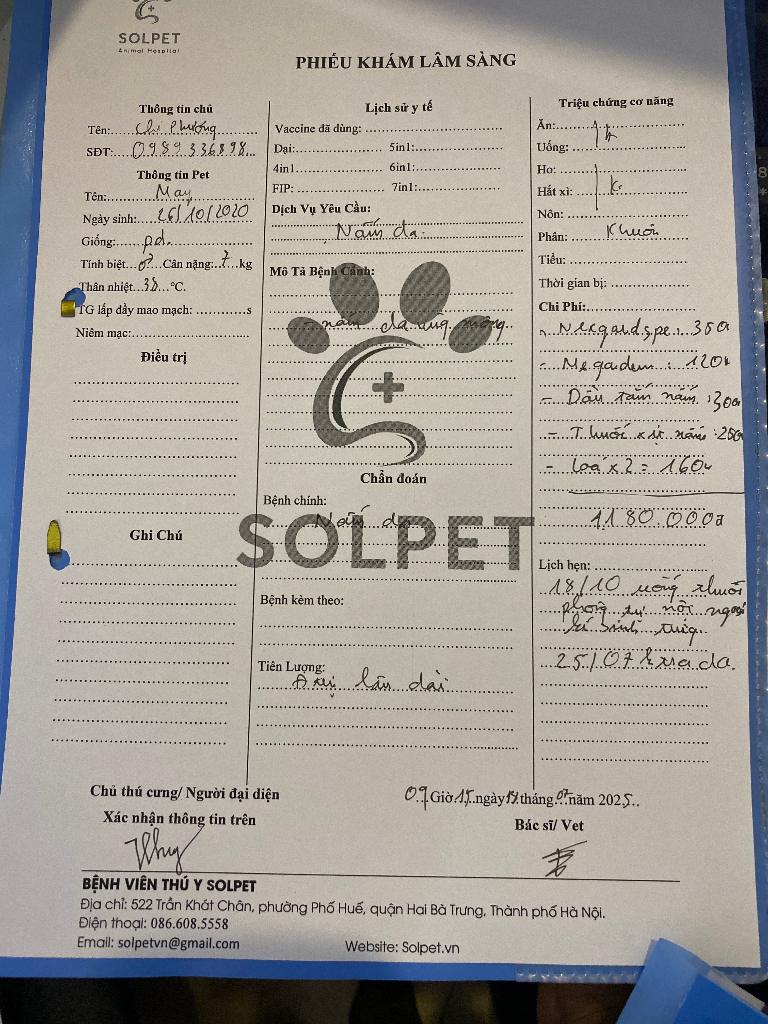 SOLPET
Animal Hospital
PHIẾU KHÁM LÂM SÀNG
Thông tin chủ
Tên: Chị Phương
SĐT: 0989336898
Thông tin Pet
Tên: May
Ngày sinh: 26/10/2020
Giống: pd.
Tính biệt: ♂ Cân nặng: 7 kg
Thân nhiệt: 38 °C.
TG lấp đầy mao mạch: s
Niêm mạc:
Điều trị
Ghi Chú
Lịch sử y tế
Vaccine đã dùng:
Dại: 5in1:
4in1 6in1:
FIP: 7in1:
Dịch Vụ Yêu Cầu:
Nấm da.
Mô Tả Bệnh Cảnh:
nấm da vùng mông
Chẩn đoán
Bệnh chính:
Nấm da
SOLPET
Bệnh kèm theo:
Tiên Lượng:
Đ trị lâu dài
Triệu chứng cơ năng
Ăn:
Uống:
Ho:
Hắt xì: k
Nôn:
Phân: Khuôn
Tiểu:
Thời gian bị:
Chi Phí:
- Nexgard spe: 350
- Megaderm: 120k
- Dầu tắm nấm: 300
- Thuốc xịt nấm: 250
- loa x2 = 160k
1180.000đ
Lịch hẹn:
18/10 uống thuốc
phòng trị nội ngoại
kí sinh trùng.
25/07 kiểm tra da.
Chủ thú cưng/ Người đại diện
Xác nhận thông tin trên
09 Giờ 15 ngày 17 tháng 07 năm 2025
Bác sĩ/ Vet
BỆNH VIÊN THÚ Y SOLPET
Địa chỉ: 522 Trần Khát Chân, phường Phố Huế, quận Hai Bà Trưng, Thành phố Hà Nội.
Điện thoại: 086.608.5558
Email: solpetvn@gmail.com Website: Solpet.vn